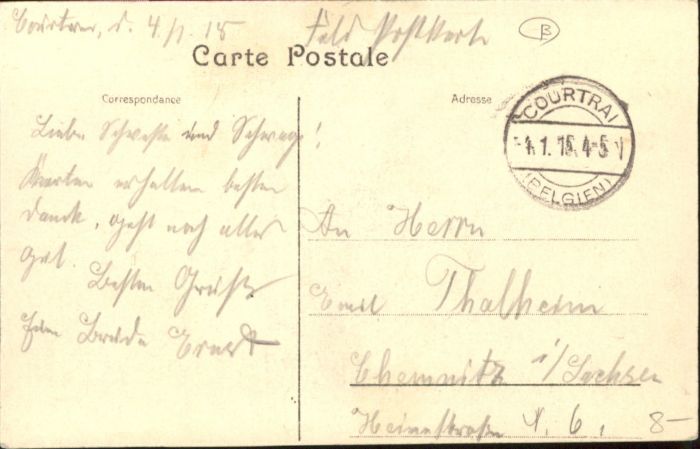 Courtrai, d. 4/1. 15
Feld Postkarte
B
Carte Postale
Correspondance
Adresse
COURTRAI
4.1.15. 4-5 N
(BELGIEN)
Liebe Schwester und Schwager!
Karten erhalten besten
Danck, geht noch alles
gut.
Besten Gruß
Euer Bruder Ernst
An Herrn
Emil Thalheim
Chemnitz i/Sachsen
N. 6.
8-